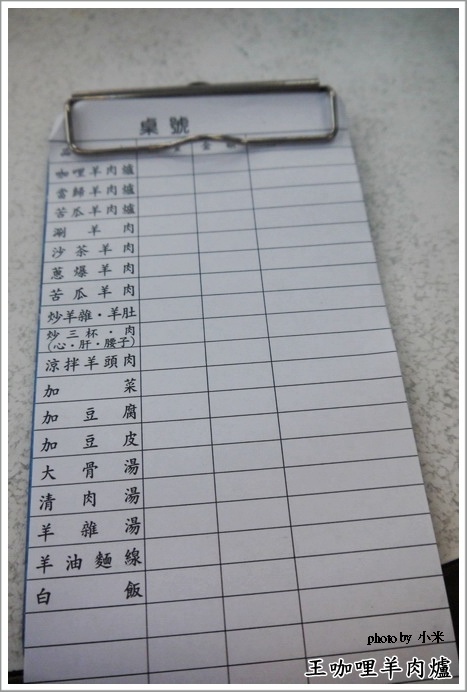 桌號
品 金額
咖哩羊肉爐
當歸羊肉爐
苦瓜羊肉爐
涮羊肉
沙茶羊肉
蔥爆羊肉
苦瓜羊肉
炒羊雜·羊肚
炒三杯·肉
(心·肝·腰子)
涼拌羊頭肉
加菜
加豆腐
加豆皮
大骨湯
清肉湯
羊雜湯
羊油麵線
白飯
photo by 小米
王咖哩羊肉爐